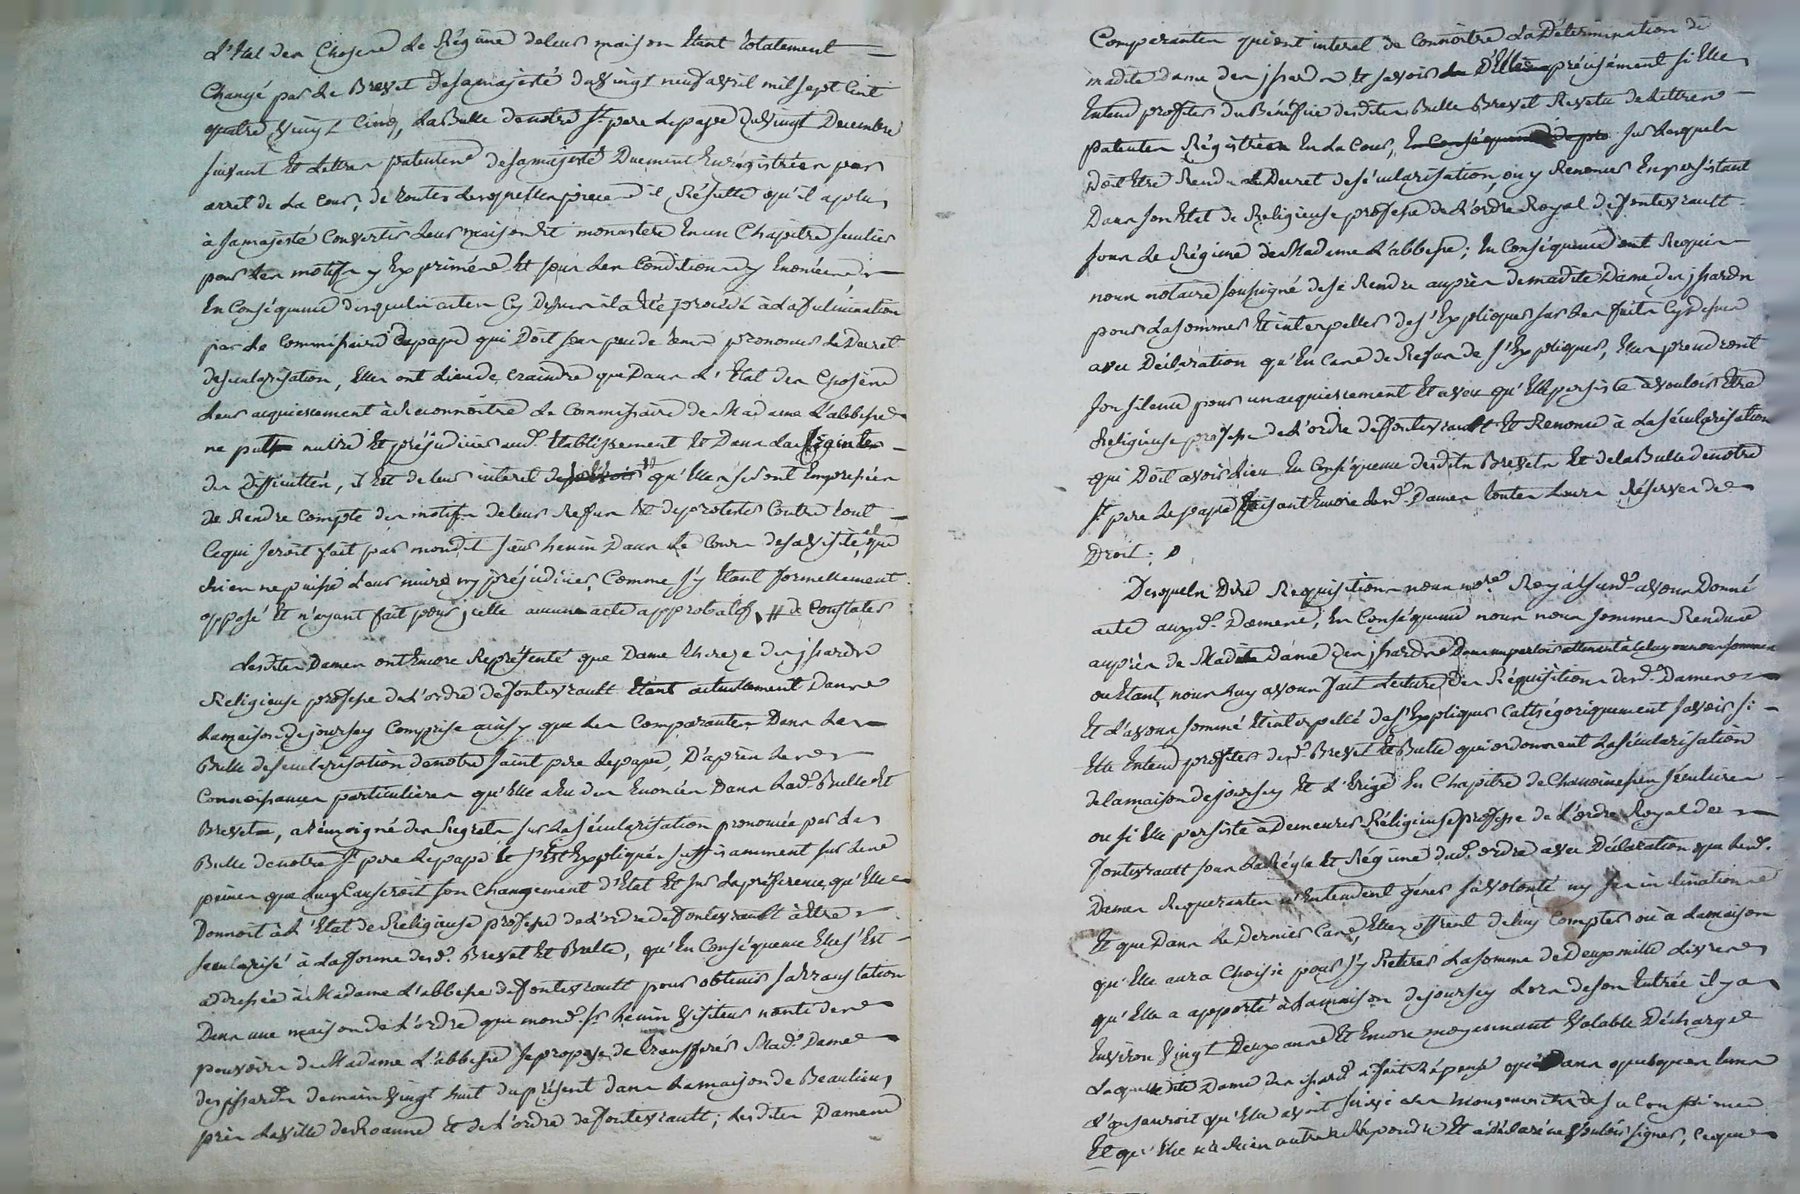 L'Etat des Choses Le Régime de leur maison Etant totalement
Changé par Le Brevet de sa majesté du Vingt neuf avril mil sept Cent
quatre Vingt Cinq, La Bulle de notre St. pere Le pape du Vingt Decembre
suivant Et Lettres patentes de sa majesté Duement Enrégistrées par
arret de La Cour, de toutes Lesquelles pieces il Résulte qu'il a plu
à sa majesté Convertir Leur maison Et monastere En un Chapitre seculier
pour Les motifs y Exprimés Et sous Les Conditions y Enoncées
En Conséquence desquels actes Cy Dessus il a Eté procédé à La fulmination
par Le Commissaire du pape qui Doit sous peu de tems prononcer Le Decret
de secularisation, Elles ont Lieu de craindre que Dans L'Etat des Choses
Leur acquiescement à Reconnoitre Le Commissaire de Madame L'abbesse
ne put nuire Et préjudicier aud. Etablissement Et Dans La crainte
des Difficultés, il Est de Leur interet qu'Elles se sont Empressées
de Rendre Compte des motifs de Leur Refus Et de protester Contre tout
Ce qui seroit fait par mondit sieur henin Dans Le Cours de sa visite, que
Rien ne puisse Leur nuire ny préjudicier, Comme s'y Etant formellement
opposé Et n'ayant fait pour icelle aucun acte approbatif, # de Constater
Lesdites Dames ont Encore Représenté que Dame therese des jssards
Religieuse professe de L'ordre de fontevrault Etant actuellement Dans
La maison de joursey Comprise ainsy que Les Comparantes Dans La
Bulle de secularisation de notre saint pere Le pape, D'après Les
Connoissances particulieres qu'Elle a Eu des Enoncés Dans Lad. Bulle Et
Brevet, a témoigné des Regrets sur La sécularisation prononcée par La
Bulle de notre St. pere Le pape Et s'Est Expliquée suffisamment sur Les
peines que Luy Causeroit son Changement d'Etat Et sur La préference qu'Elle
Donnoit à L'Etat de Religieuse professe de L'ordre de fontevrault à Etre
secularisé à La forme desd. Brevet Et Bulle, qu'En Conséquence Elle s'Est
adressée à Madame L'abbesse de fontevrault pour obtenir sa translation
Dans une maison de L'ordre que mond. Sr. henin Visiteur nanti des
pouvoirs de Madame L'abbesse se propose de transferer Mad. Dame
des jssards demain Vingt huit du présent dans La maison de Beaulieu
près La ville de Roanne Et de L'ordre de fontevrault; Lesdites Dames
Comparantes qui ont interet de Connoitre La Détermination de
madite dame des jssards Et savoir précisément si Elle
Entend profiter du Bénéfice desdites Bulle Brevet Revetu de Lettres
patentes Régistrées En La Cour, sur Lesquels
Doit Etre Rendu Le Decret de sécularisation, ou y Renoncer En persistant
Dans son Etat de Religieuse professe de L'ordre Royal de fontevrault
sous Le Régime de Madame L'abbesse; En Conséquence ont Requis
nous notaire soussigné de se Rendre auprès de madite Dame des jssards
pour La sommer Et interpeller de s'Expliquer sur Les faits Cy Dessus
avec Déclaration qu'En Cas de Refus de s'Expliquer, Elles prendront
son silence pour un acquiescement Et aveu qu'Elle persiste à vouloir Etre
Religieuse professe de L'ordre de fontevrault Et Renonce à La sécularisation
qui Doit avoir Lieu En Conséquence desdits Brevets Et de La Bulle de notre
St. pere Le pape faisant Encore Lesd. Dames toutes Leurs Réserves de
Droit.
Desquels Dire Requisitions nous nore. Royal susd. avons Donné
acte auxd. Dames, En Conséquence nous nous sommes Rendus
auprès de Madite dame des jssards Dans un parloir attenant à Celuy ou nous sommes
ou Etant nous Luy avons fait Lecture Des Réquisitions desd. Dames
Et L'avons sommé Et interpellé de s'Expliquer Cathégoriquement savoir si
Elle Entend profiter desd. Brevet Et Bulle qui ordonnent La sécularisation
de La maison de joursey Et L'érige En Chapitre de Chanoinesses séculieres
ou si Elle persiste à Demeurer Réligieuse professe de L'ordre Royal de
fontevrault sous La Régle Et Régime dud. ordre avec Déclaration que Lesd.
Dames Requerantes n'Entendent gêner sa volonté ny ses inclinations
Et que Dans Le Dernier Cas, Elles offrent de Luy Compter ou à La maison
qu'Elle aura Choisie pour s'y Retirer La somme de Deux mille Livres
qu'Elle a apporté à La maison de joursey Lors de son Entrée il y a
Environ Vingt Deux ans Et Encore moyennant Valable Décharge
Laquelle dite Dame des jssards a fait Réponse que Dans quelques tems
L'on sauroit qu'Elle avoit suivi Les mouvemens de sa Conscience
Et qu'Elle n'a Rien autre à Répondre Et a déclaré ne Vouloir signer, Ce que